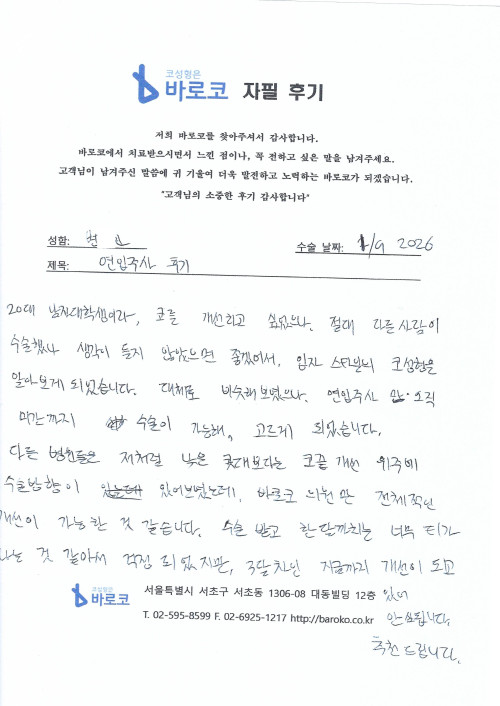 코성형은
바로코 자필 후기
저희 바로코를 찾아주셔서 감사합니다.
바로코에서 치료받으시면서 느낀 점이나, 꼭 전하고 싶은 말을 남겨주세요.
고객님이 남겨주신 말씀에 귀 기울여 더욱 발전하고 노력하는 바로코가 되겠습니다.
"고객님의 소중한 후기 감사합니다"
성함: 수술 날짜: 1/9 2026
제목: 연임주사 후기
20대 남자대학생이라, 코를 개선하고 싶었으나. 절대 다른사람이
수술했나 생각이 들지 않았으면 좋겠어서, 임자 스타일의 코성형을
알아보게 되었습니다. 대체로 비슷해보였으나. 연임주사 만 오직
미간까지 수술이 가능해, 고르게 되었습니다.
다른 병원들은 저처럼 낮은 콧대보다는 코끝 개선 위주에
수술방향이 있어보였는데, 바로코 의원만 전체적인
개선이 가능한 것 같습니다. 수술 받고 한달까지는 너무 티가
나는 것 같아서 걱정 되었지만, 3달차인 지금까지 개선이 되고
있어
안심됩니다.
추천드립니다.
코성형은
바로코
서울특별시 서초구 서초동 1306-08 대동빌딩 12층
T. 02-595-8599 F. 02-6925-1217 http://baroko.co.kr